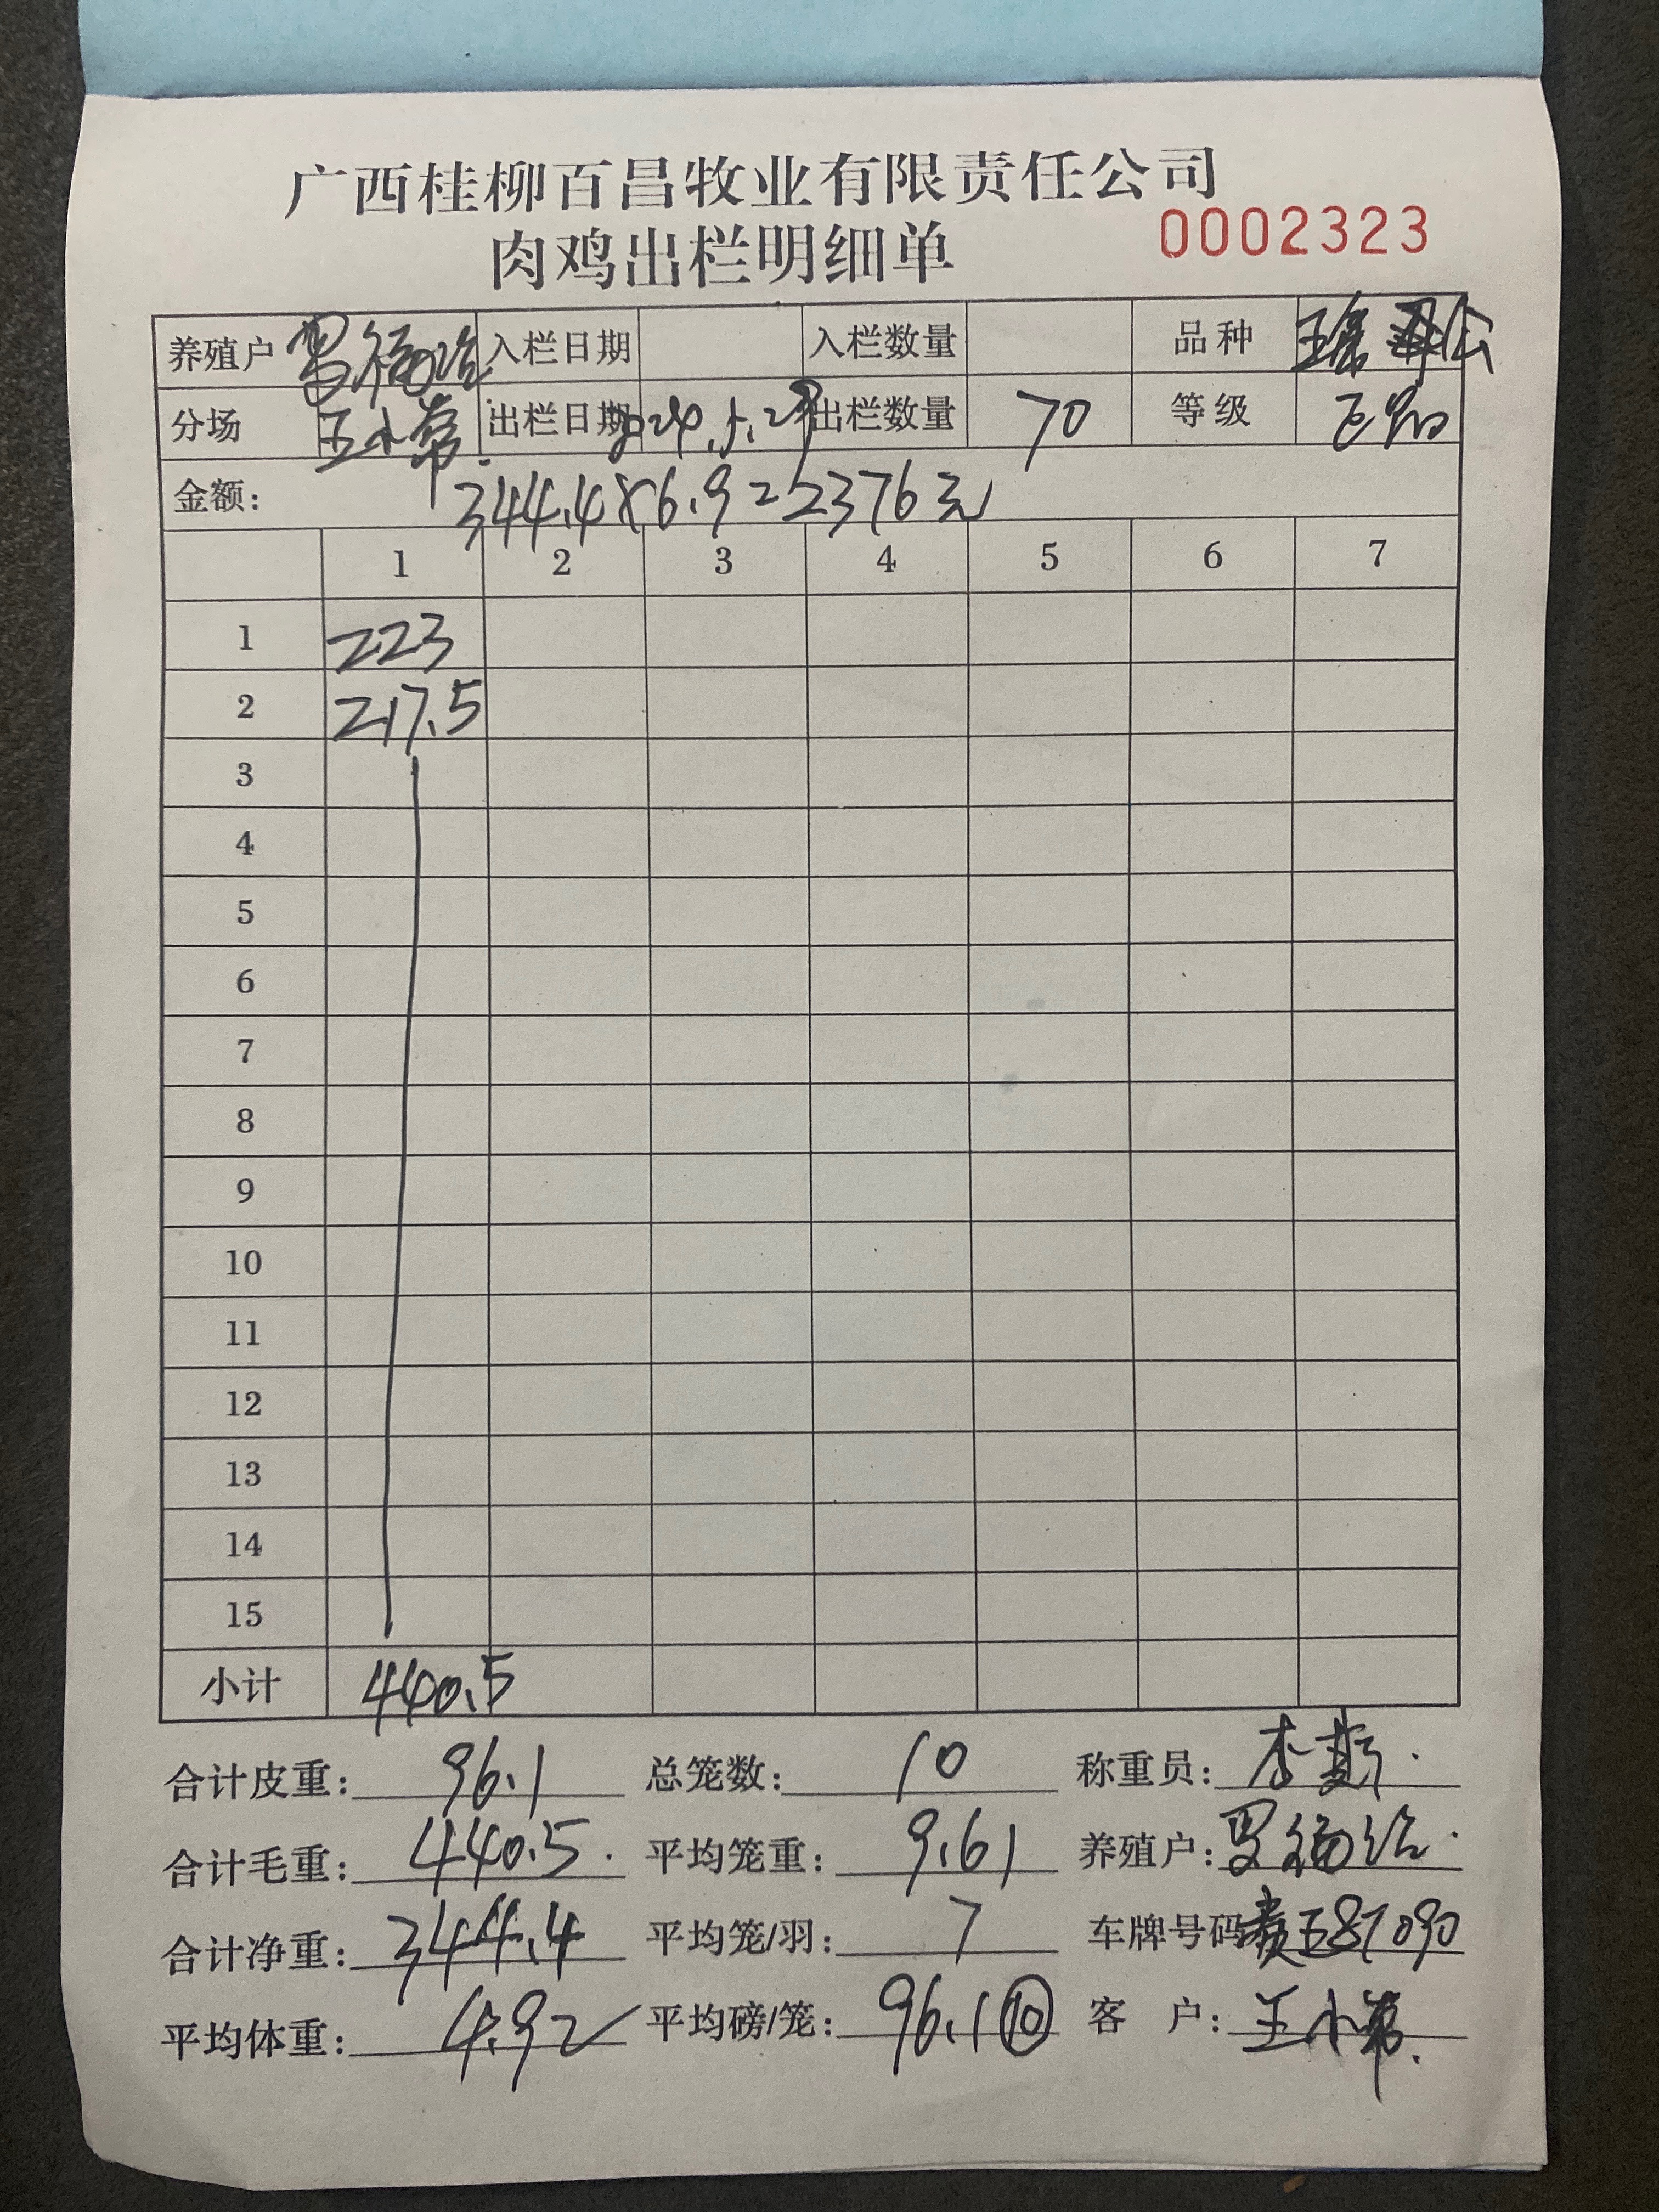 广西桂柳百昌牧业有限责任公司
肉鸡出栏明细单 0002323
养殖户 入栏日期 入栏数量 品种
分场 王小 出栏日期 2024.5.29 出栏数量 70 等级
金额: 344.4×6.9=2376元
1 2 3 4 5 6 7
1 223
2 217.5
3
4
5
6
7
8
9
10
11
12
13
14
15
小计 440.5
合计皮重: 96.1 总笼数: 10 称重员: 李
合计毛重: 440.5 平均笼重: 9.61 养殖户:
合计净重: 344.4 平均笼/羽: 7 车牌号码 87090
平均体重: 4.92 平均磅/笼: 96.1 10 客户: 王小